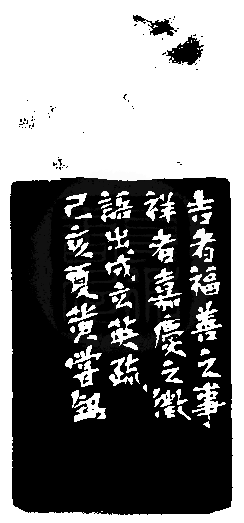 吉者福善之事
祥者嘉慶之徵
語出成玄英疏
己亥夏黄嘗銘